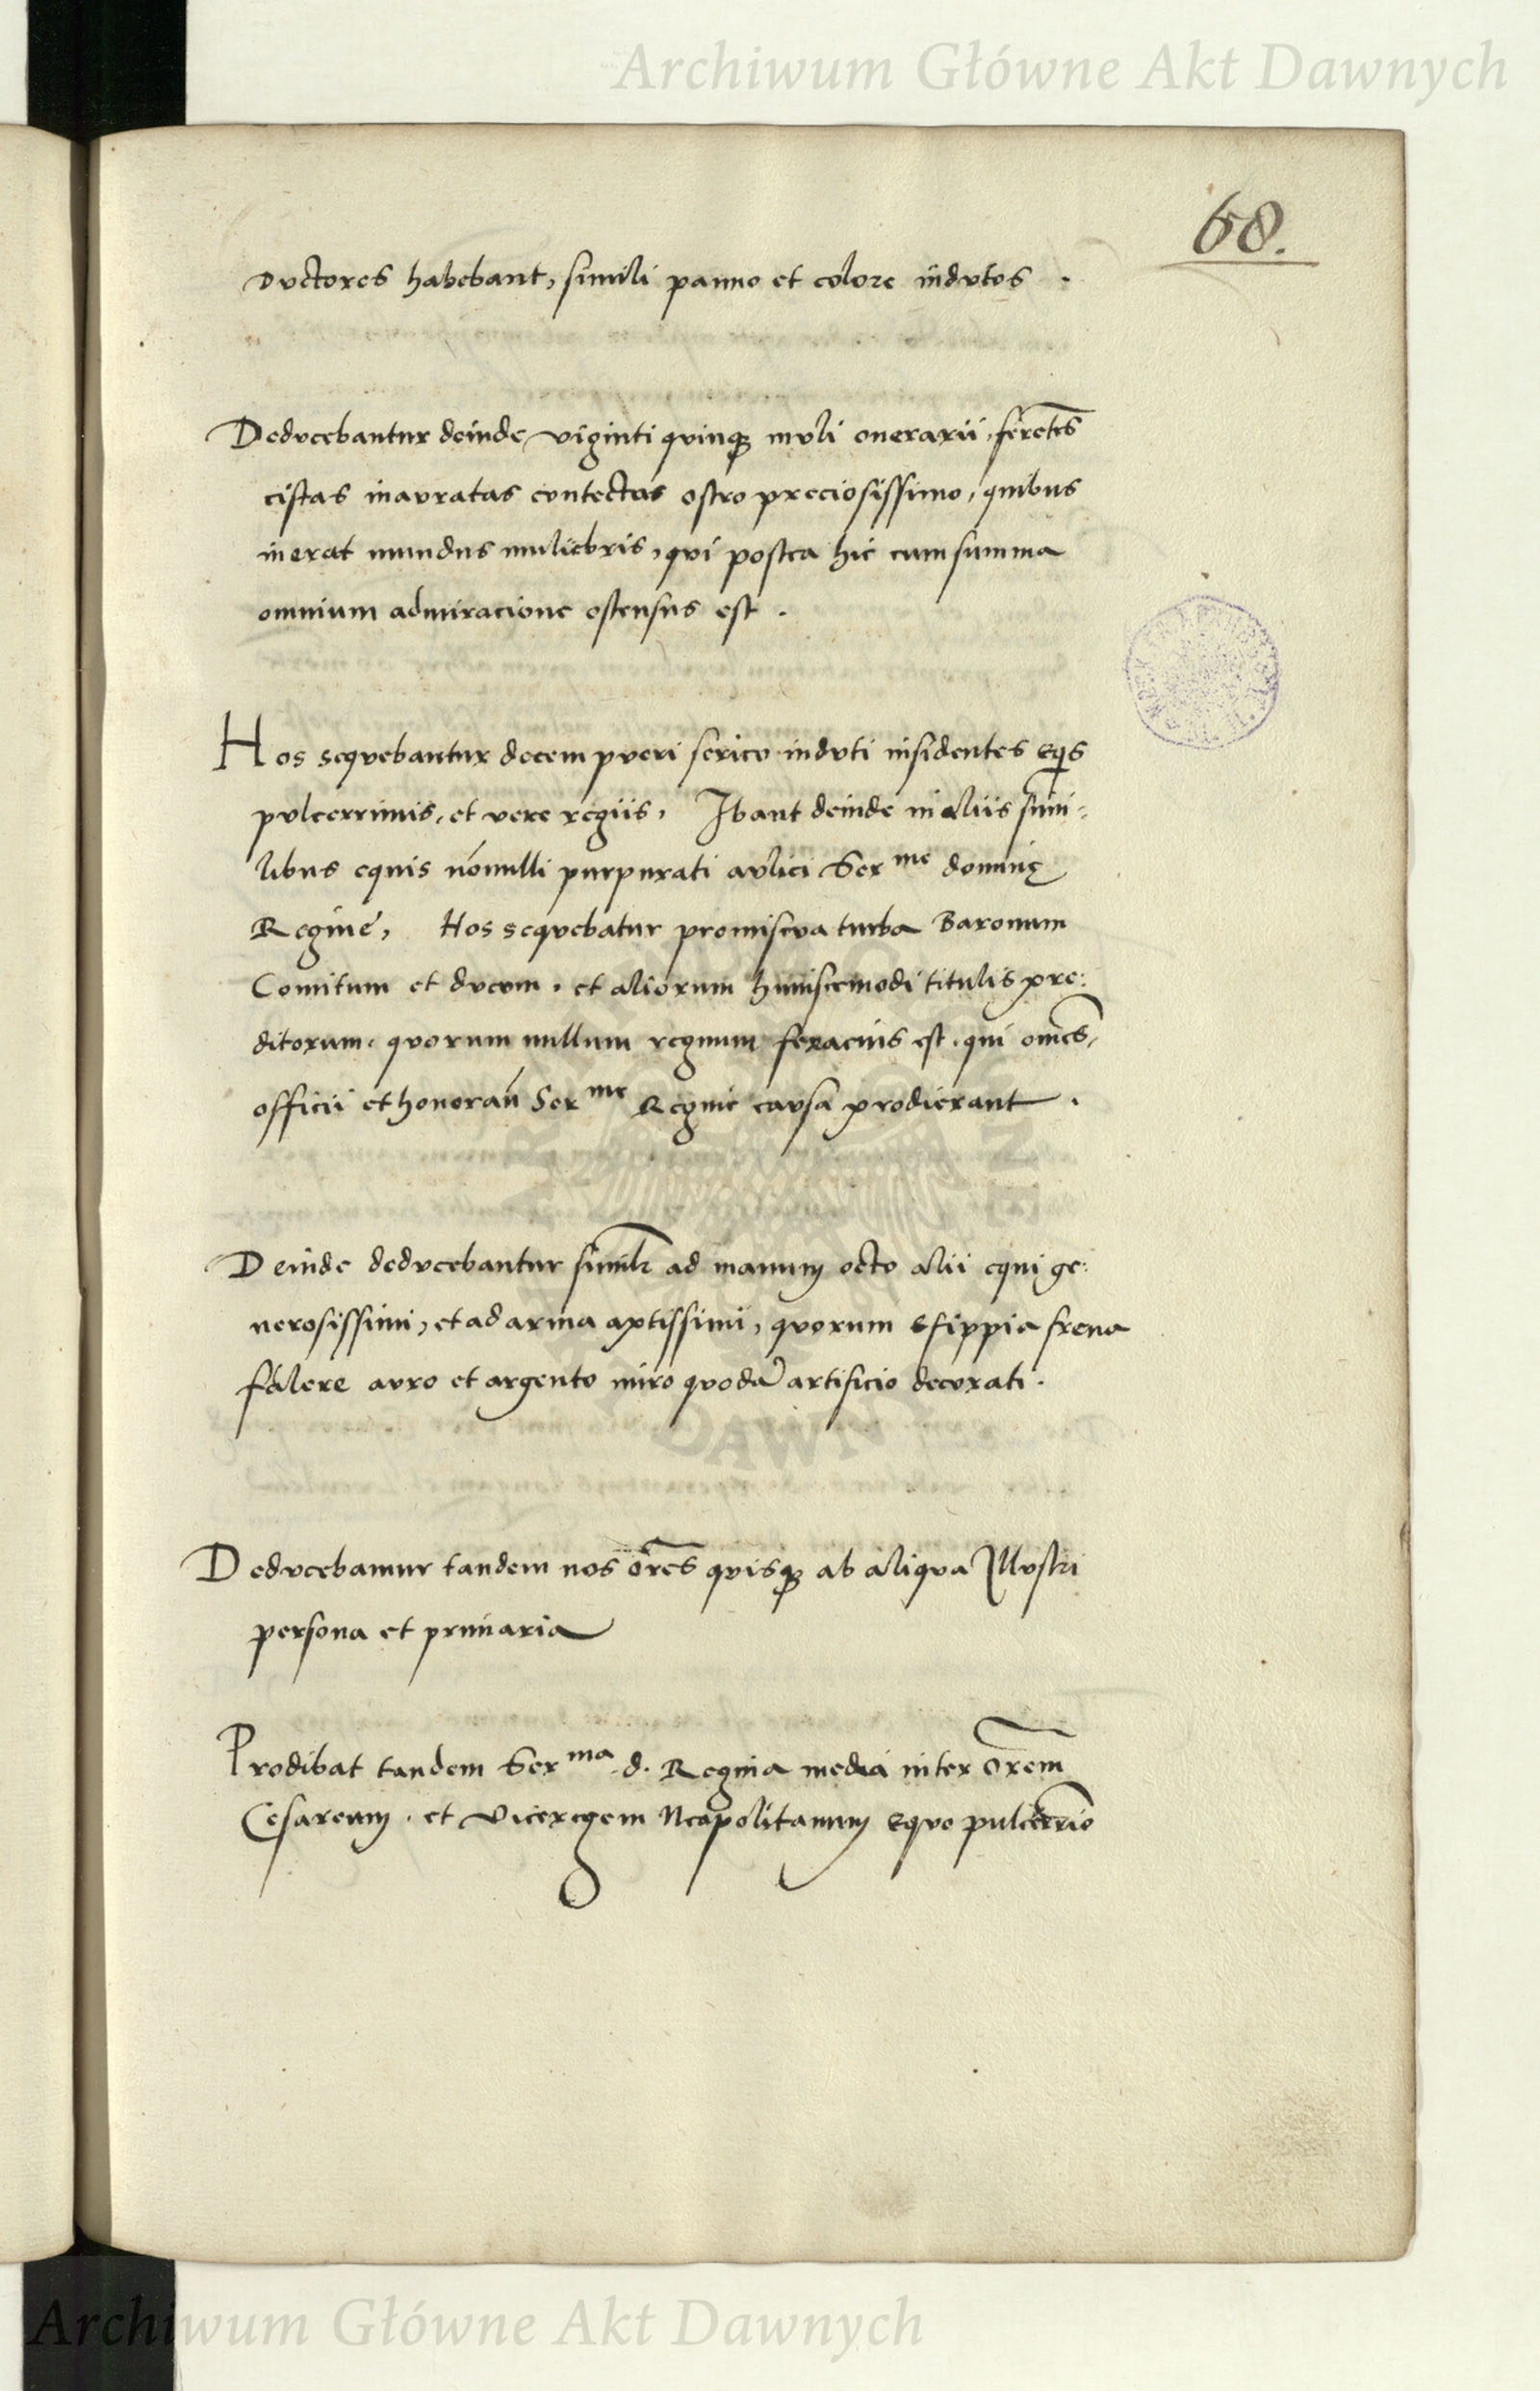 Archiwum Główne Akt Dawnych
68.
ductores habebant, simili panno et colore indutos .
Deducebantur deinde viginti quinqȝ muli onerarii, feretes̄
cistas inauratas contectas ostro preciosissimo, quibus
inerat mundus muliebris, qui postea hic cum summa
omnium admiracione ostensus est .
Hos sequebantur decem pueri serico induti insidentes eqis
pulcerrimis, et vere regiis, Ibant deinde in aliis simi-
libus equis nōnulli purpurati aulici Ser me dominę
Regine, Hos sequebatur promiscua turba Baronum
Comitum et ducum, et aliorum huiuscemodi titulis pre:
ditorum, quorum nullum regnum feracius est, qui om̄es,
officii et honoran̄ Ser me Regine causa prodierant .
Deinde deducebantur simil̄r ad manum octo alii equi ge:
nerosissimi, et ad arma aptissimi, quorum efippia frena
falere auro et argento miro quodā artificio decorati .
Deducebamur tandem nos or̄es quisqȝ ab aliqua Illustri
persona et primaria
Prodibat tandem Ser ma d. Regina media inter Or̄em
Cesareum, et Viceregem Neapolitanum equo pulcerr̄io
DAWN
Archiwum Główne Akt Dawnych